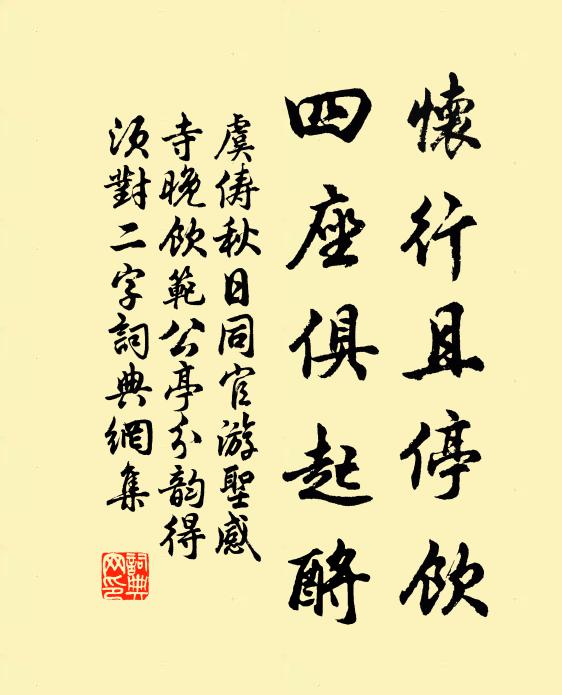 懷行且停飲
四座俱起酹
虞俦秋日同官游聖感
寺晚飲範公亭分韵得
須對二字詞典網集
詞典網印